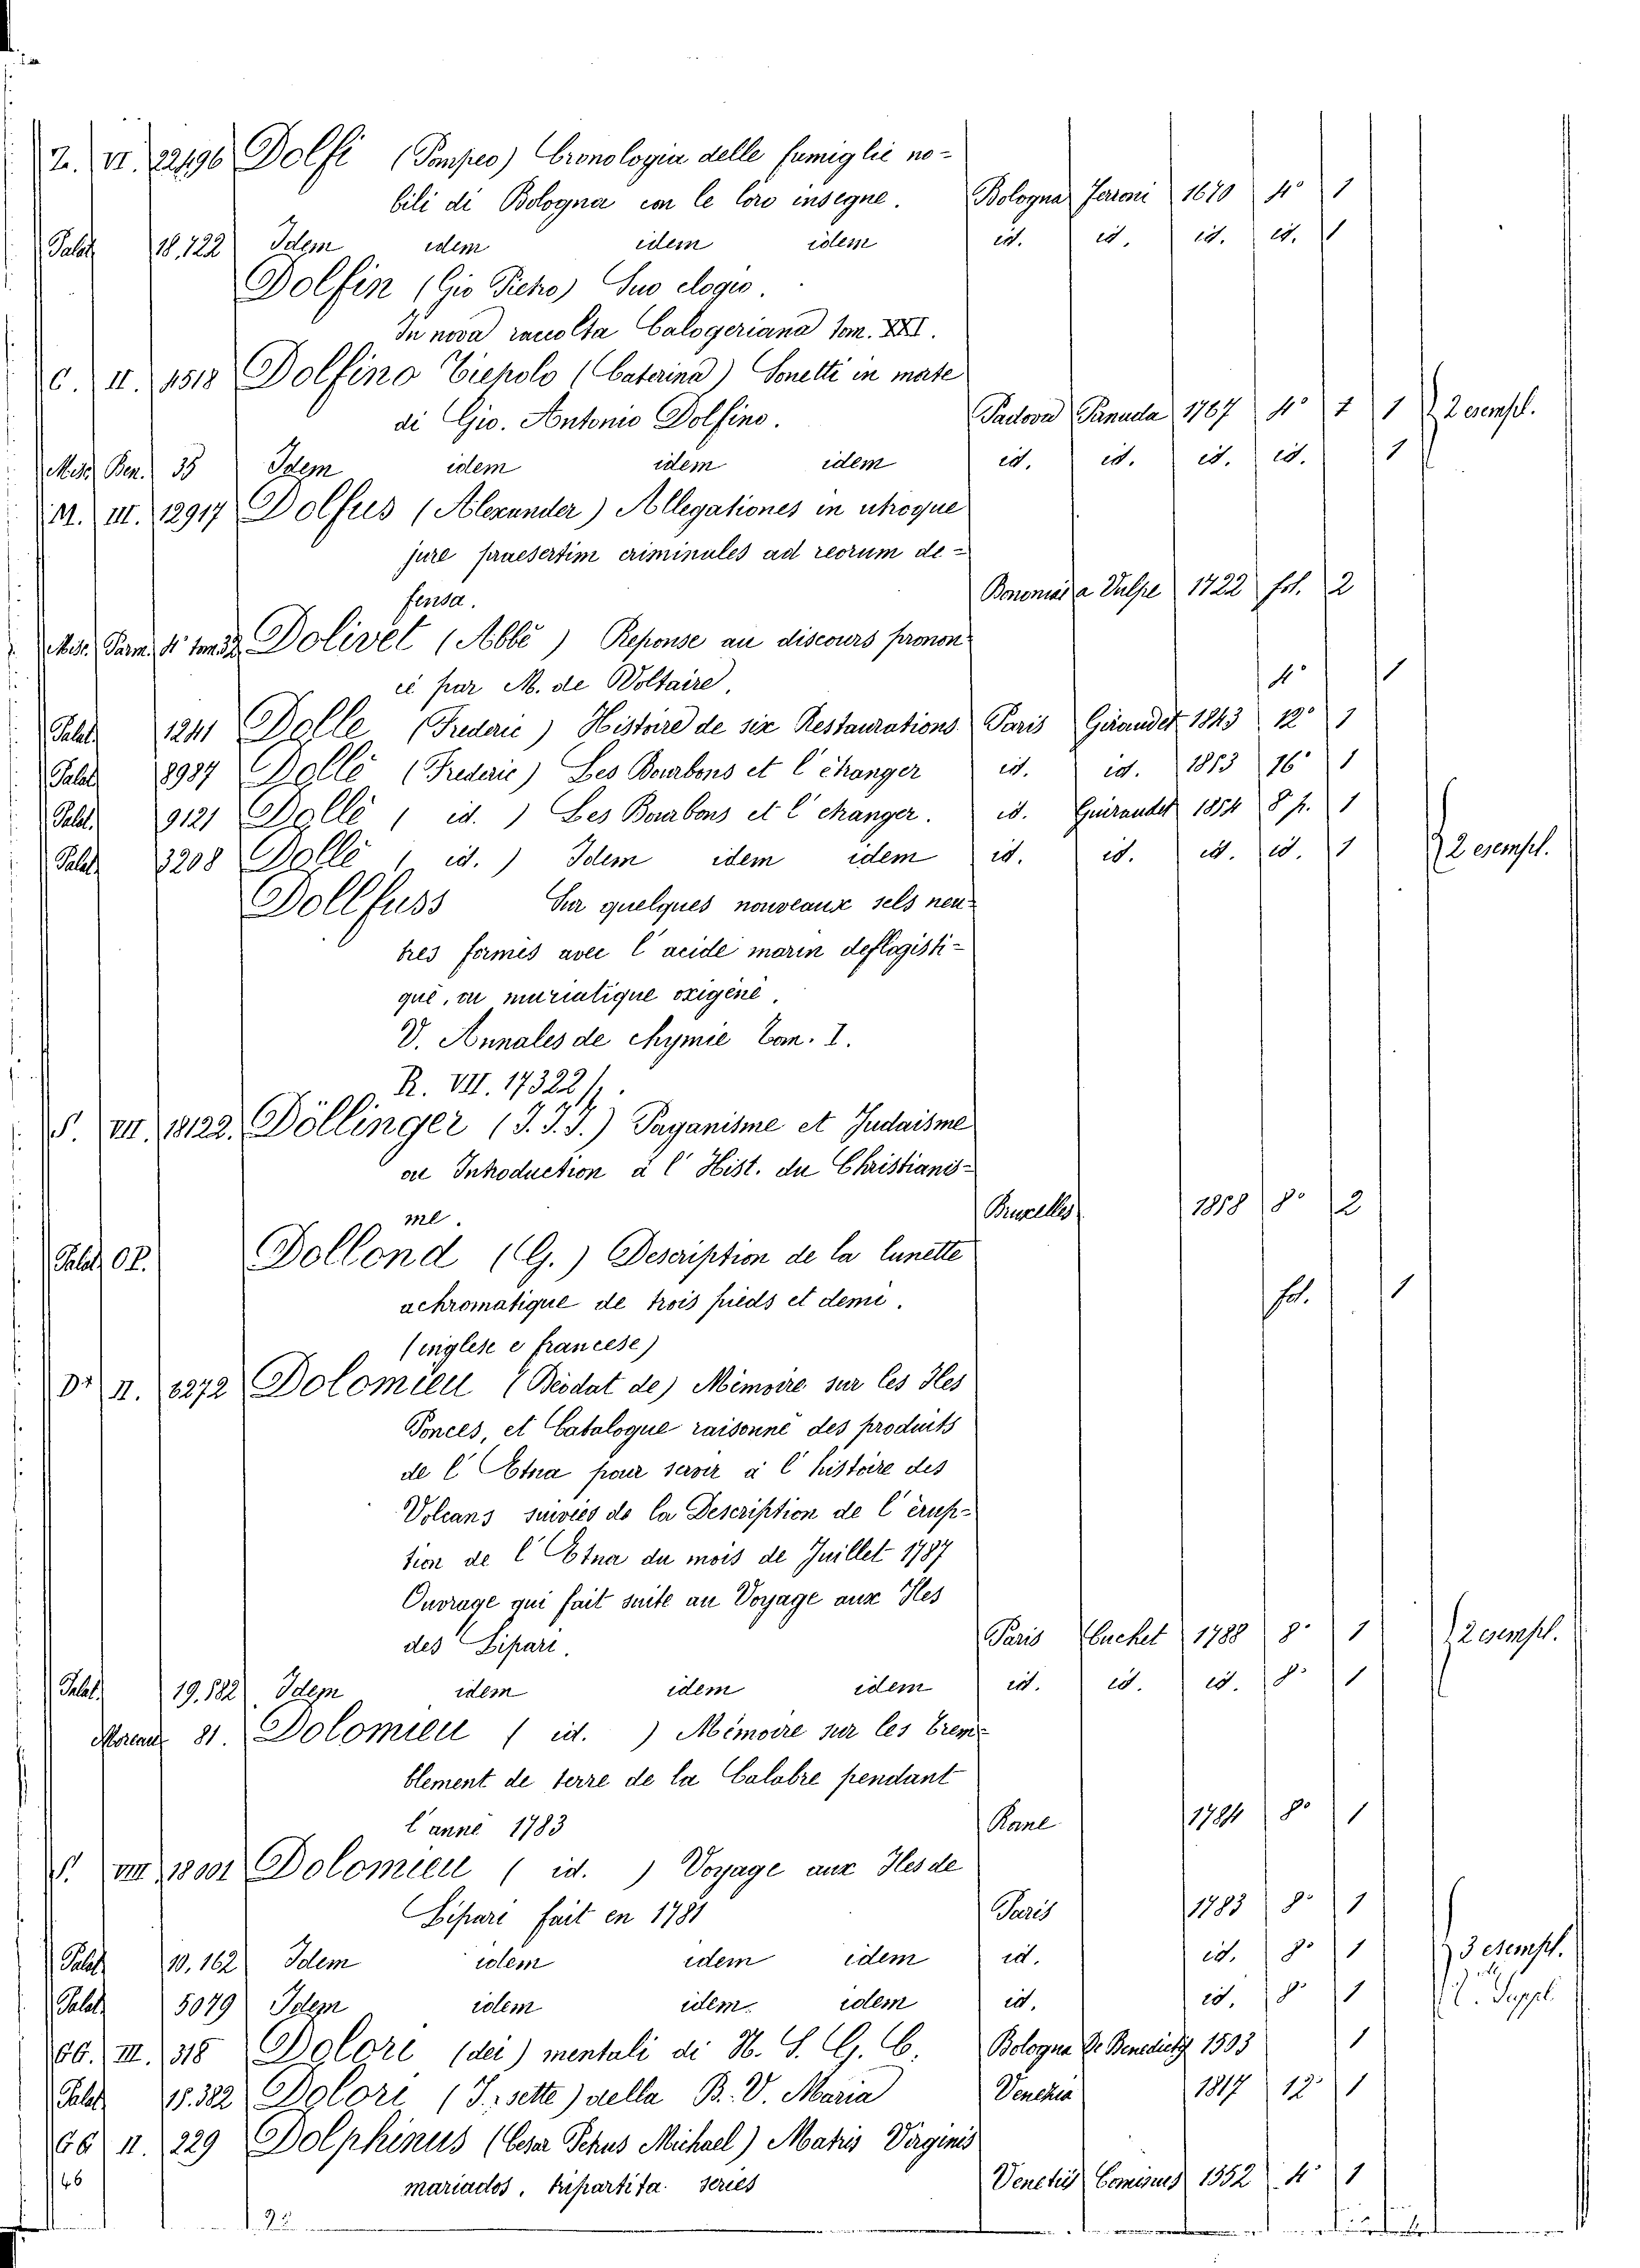 Z. VI. 22496 Dolfi (Pompeo) Cronologia delle famiglie no-
bili di Bologna con le loro insegne. Bologna Ferroni 1670 4° 1
Palat. 18,722 Idem idem idem idem id. id. id. id. 1
Dolfin (Gio Pietro) Suo elogio.
In nova raccolta Calogeriana tom. XXI.
C. II. 4518 Dolfino Tiepolo (Caterina) Sonetti in morte
di Gio. Antonio Dolfino. Padova Penada 1767 4° 1 1 2 esempl.
Misc. Ben. 35 Idem idem idem idem id. id. id. id. 1
M. III. 12917 Dolfus (Alexander) Allegationes in utroque
jure praesertim criminales ad reorum de-
fensa. Bononiae a Vulpe 1722 fol. 2
Misc. Parm. 4° tom. 32 Dolivet (Abbè) Reponse au discours pronon-
cé par M. de Voltaire. 4° 1
Palat. 1241 Dolle (Frederic) Histoire de six Restaurations Paris Gerandet 1843 12° 1
Palat. 8987 Dollé (Frederic) Les Bourbons et l'ètranger id. id. 1853 16° 1
Palat. 9121 Dollè ( id. ) Les Bourbons et l'etranger. id. Guirandet 1854 8° p. 1
Palat. 3208 Dollè ( id. ) Idem idem idem id. id. id. id. 1 2 esempl.
Dollfuss Sur quelques nouveaux sels neu-
tres formés avec l'acide marin deflogisti-
qué, ou muriatique oxigené.
V. Annales de chymie Tom. I.
R. VII. 17322/1.
S. VII. 18122. Döllinger (J. J. J.) Paganisme et Judaisme
ou Introduction à l'Hist. du Christianis-
me. Bruxelles 1858 8° 2
Palat. OP. Dollond (G.) Description de la lunette
achromatique de trois pieds et demi. fol. 1
(inglese e francese)
D* II. 6272 Dolomieu (Deodat de) Mémoire sur les Iles
Ponces, et Catalogue raisonné des produits
de l'Etna pour servir à l'histoire des
Volcans suivies de la Description de l'érup-
tion de l'Etna du mois de Juillet 1787
Ouvrage qui fait suite au Voyage aux Iles
des Lipari. Paris Cuchet 1788 8° 1 2 esempl.
Palat. 19.582 Idem idem idem idem id. id. id. 8° 1
Moreau 81. Dolomieu ( id. ) Mémoire sur les trem-
blement de terre de la Calabre pendant
l'anné 1783 Rome 1784 8° 1
S. VIII 18001 Dolomieu ( id. ) Voyage aux Iles de
Lipari fait en 1781 Paris 1783 8° 1
Palat. 10.162 Idem idem idem idem id. id. 8° 1 3 esempl.
Palat. 5079 Idem idem idem idem id. id. 8° 1 v. Suppl.
GG. III. 318 Dolori (dei) mentali di N. S. G. C. Bologna De Benedictis 1503 1
Palat. 15.382 Dolori (I sette) della B. V. Maria Venezia 1817 12° 1
GG II. 229 Dolphinus (Cesar Petrus Michael) Matris Virginis
mariados, tripartita series Venetiis Cominus 1552 4° 1
46